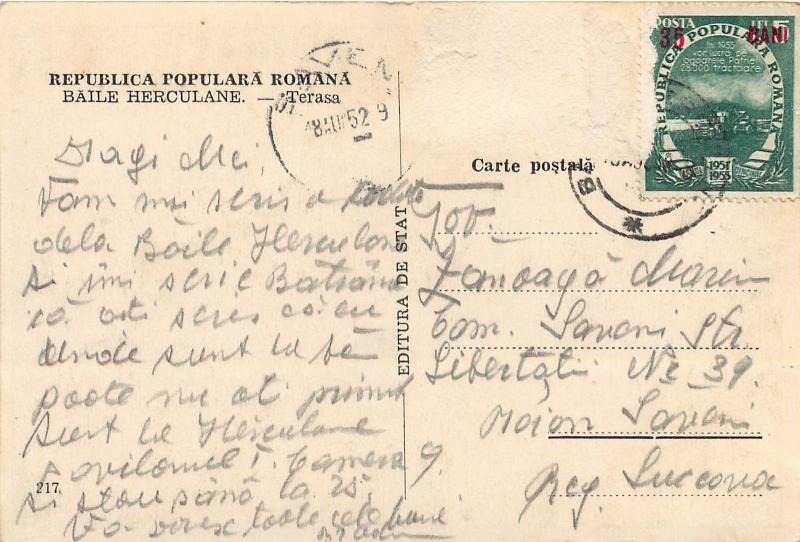 REPUBLICA POPULARĂ ROMÂNĂ
BĂILE HERCULANE. — Terasa
Dragi Mei,
V-am mai scris o
dela Băile Herculane
și îmi scrie Bătrâna
că ați scris că eu
unde sunt la băi
poate nu ați primit
sunt la Herculane
pavilionul I. Camera 9
și stau până la 25,
Vă doresc toate cele bune
217
EDITURA DE STAT
Carte poștală
Tov.
Zamoagă Marin
Com. Saveni Str.
Libertății Nr. 39
Raion Saveni
Reg. Suceava
POSTA LEI
35 BANI
REPUBLICA POPULARA ROMANA
In 1955
vor lucra pe
ogoarele Patriei
28000 tractoare
1951
1955
52 9